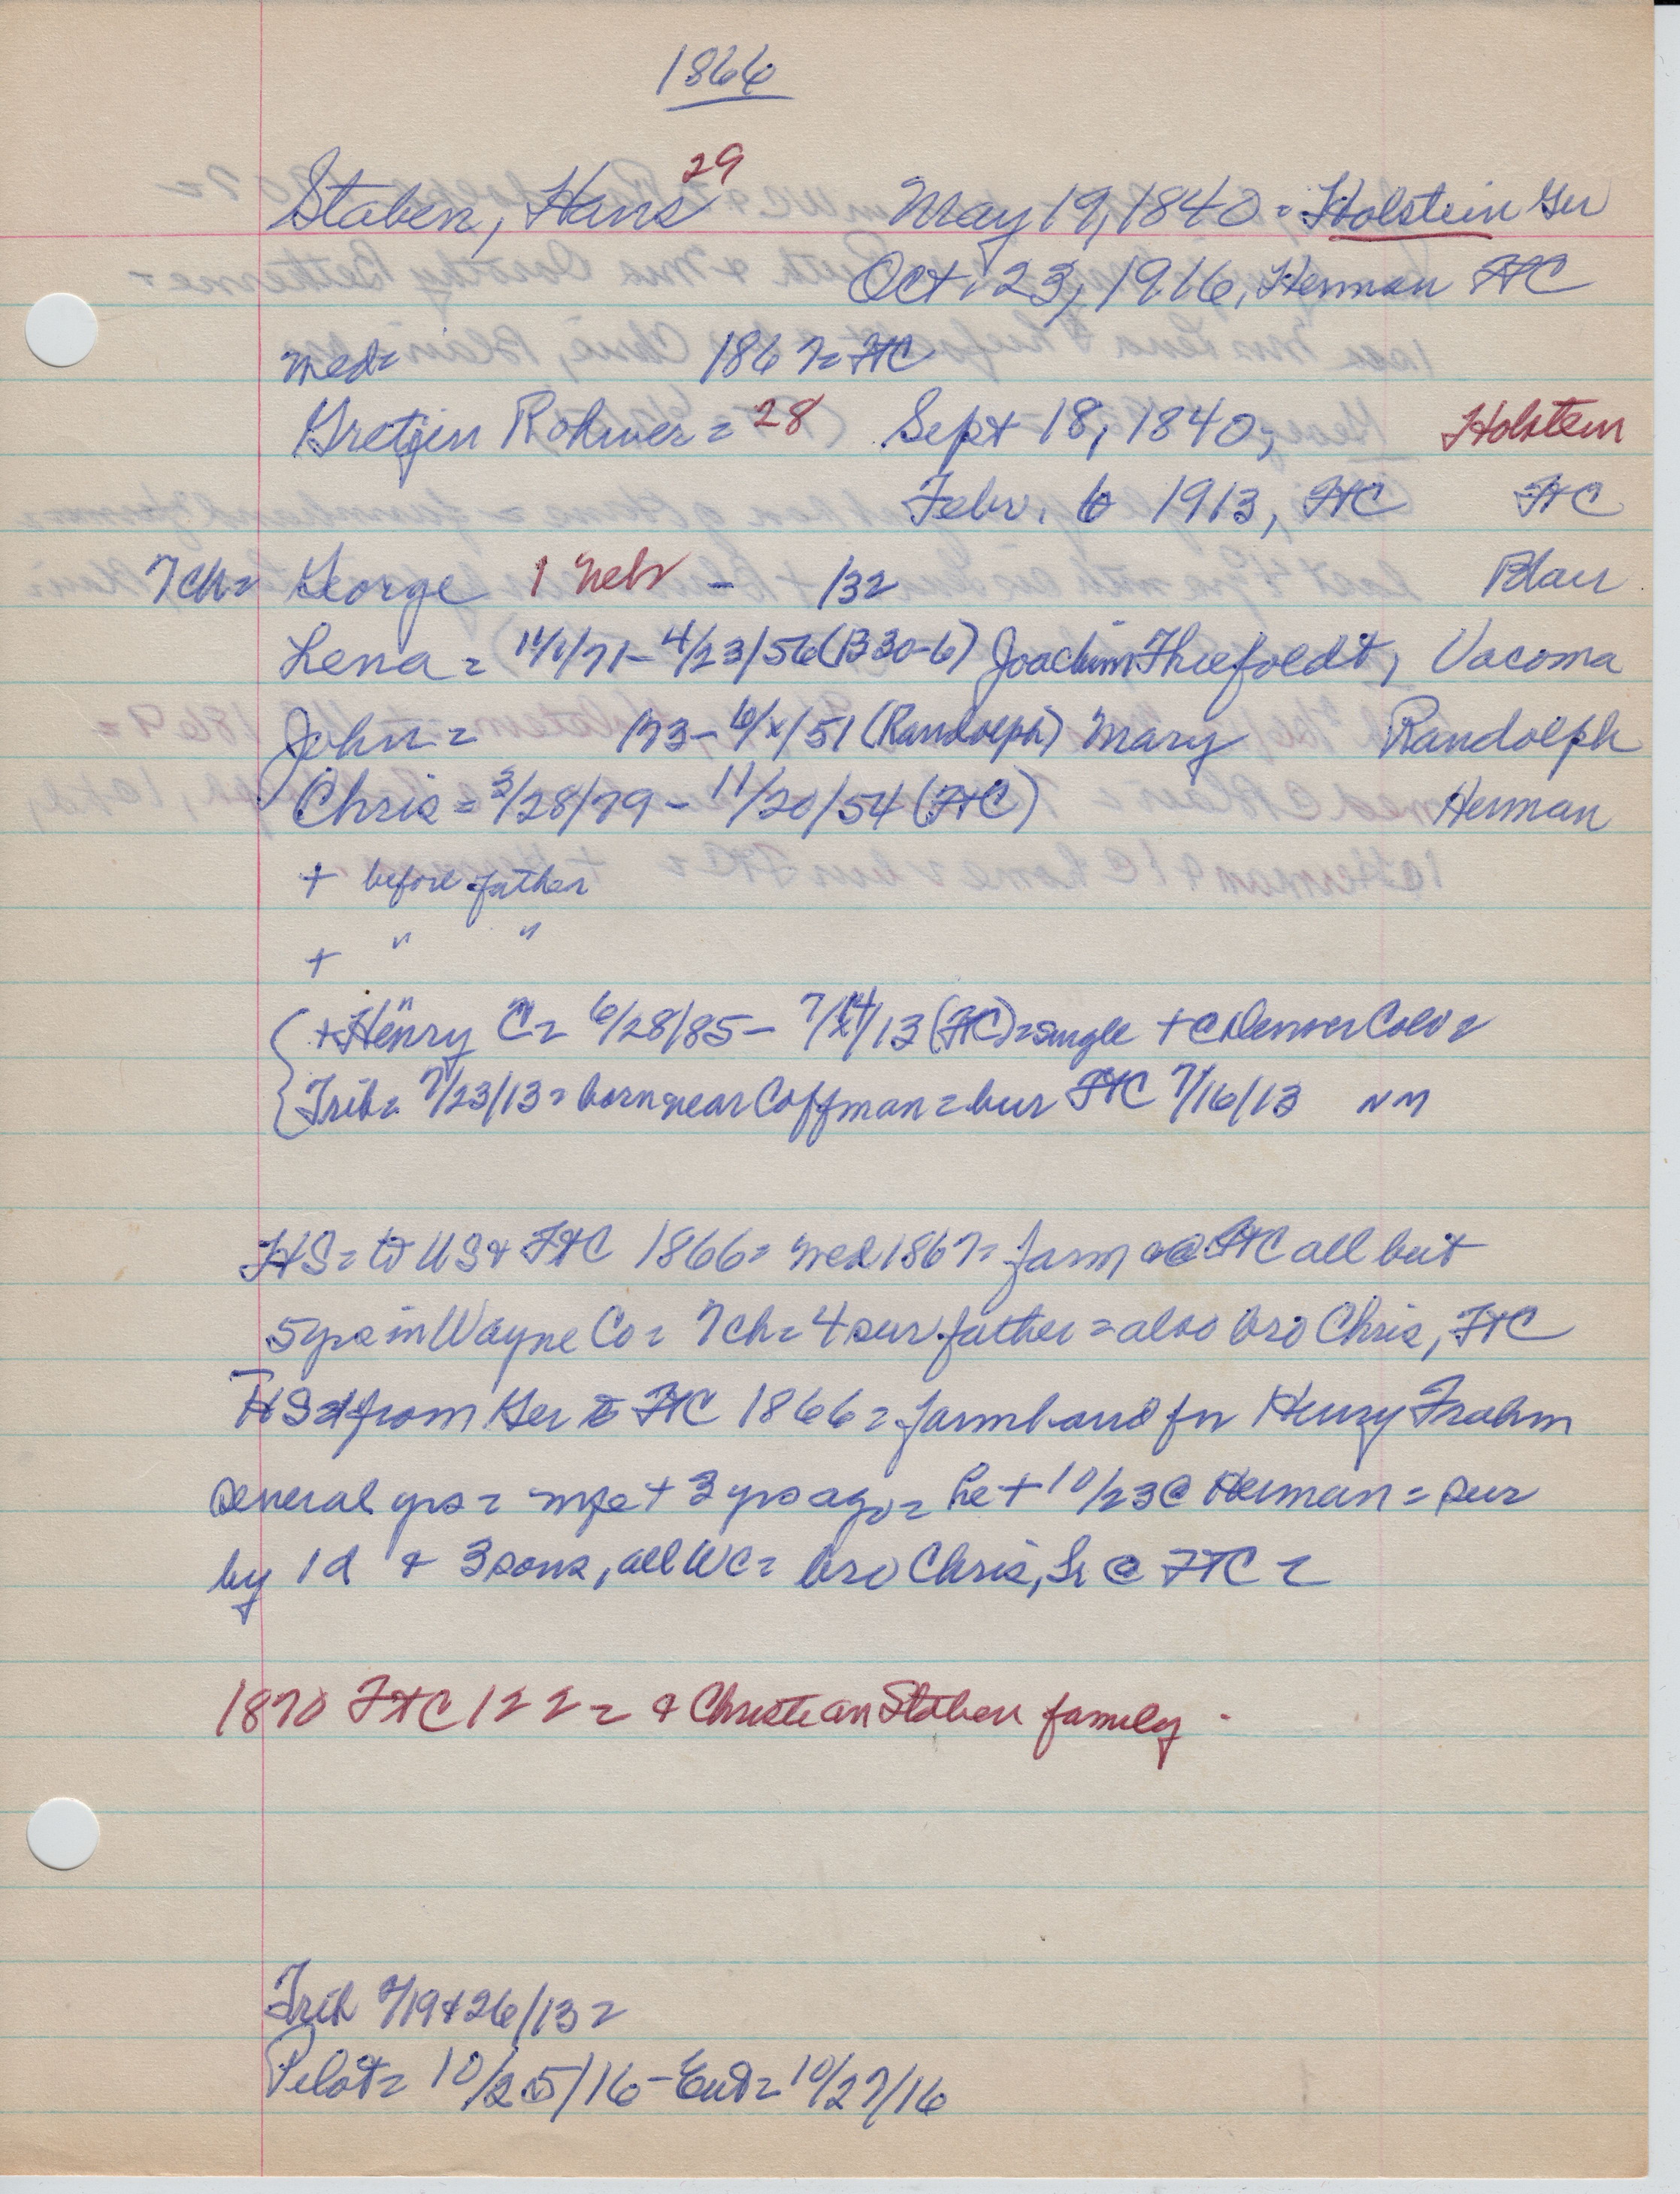 1866
29
Staben, Hans May 19, 1840 = Holstein Ger
Oct. 23, 1916, Herman FtC
med= 1867= FtC
Gretjen Rohwer = 28 Sept 18, 1840, Holstein
Febr. 6 1913, FtC FtC
7ch= George 1 Nebr - /32 Blair
Lena = 11/1/71- 4/23/56 (B30-6) Joachim Thiefoldt, Vacoma
John = /73- 6/x/51 (Randolph) Mary Randolph
Chris = 3/28/79 - 11/20/54 (FtC) Herman
+ before father
+ " "
+Henry C= 6/28/85- 7/14/13 (FtC)=single + @ Denver Colo =
Trib= 7/23/13= born near Coffman = bur FtC 7/16/13 NM
HS= to US & FtC 1866= med 1867= farm @ FtC all but
5 yrs in Wayne Co = 7ch= 4 sur father = also bro Chris, FtC
HS from Ger to FtC 1866 = farmhand for Henry Frahm
several yrs = wife + 3 yrs ago = he + 10/23 @ Herman = sur
by 1d & 3 sons, all WC= bro Chris, Sr @ FTC =
1870 FtC 122 = & Christian Staben family -
Trib 7/19&26/13 =
Pilot= 10/25/16 - Ent= 10/27/16